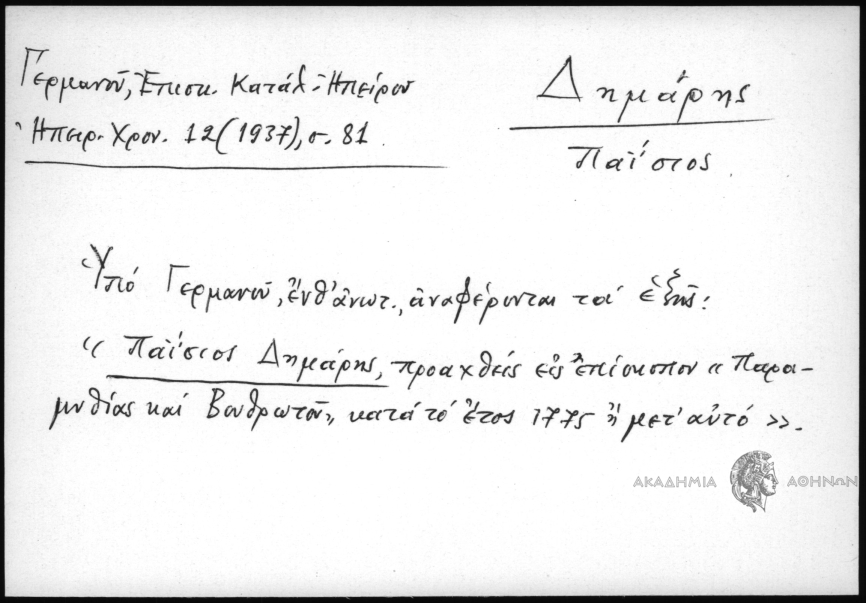 Γερμανοῦ, Ἐπισκ. Κατάλ. Ἠπείρου
Ἠπειρ. Χρον. 12 (1937), σ. 81
Δημάρης
Παΐσιος
Ὑπό Γερμανοῦ, ἔνθ' ἀνωτ., ἀναφέρονται τά ἑξῆς:
« Παΐσιος Δημάρης, προαχθείς εἰς ἐπίσκοπον « Παρα-
μυθίας καί Βουθρωτοῦ», κατά τό ἔτος 1775 ἤ μετ' αὐτό ».
ΑΚΑΔΗΜΙΑ ΑΘΗΝΩΝ